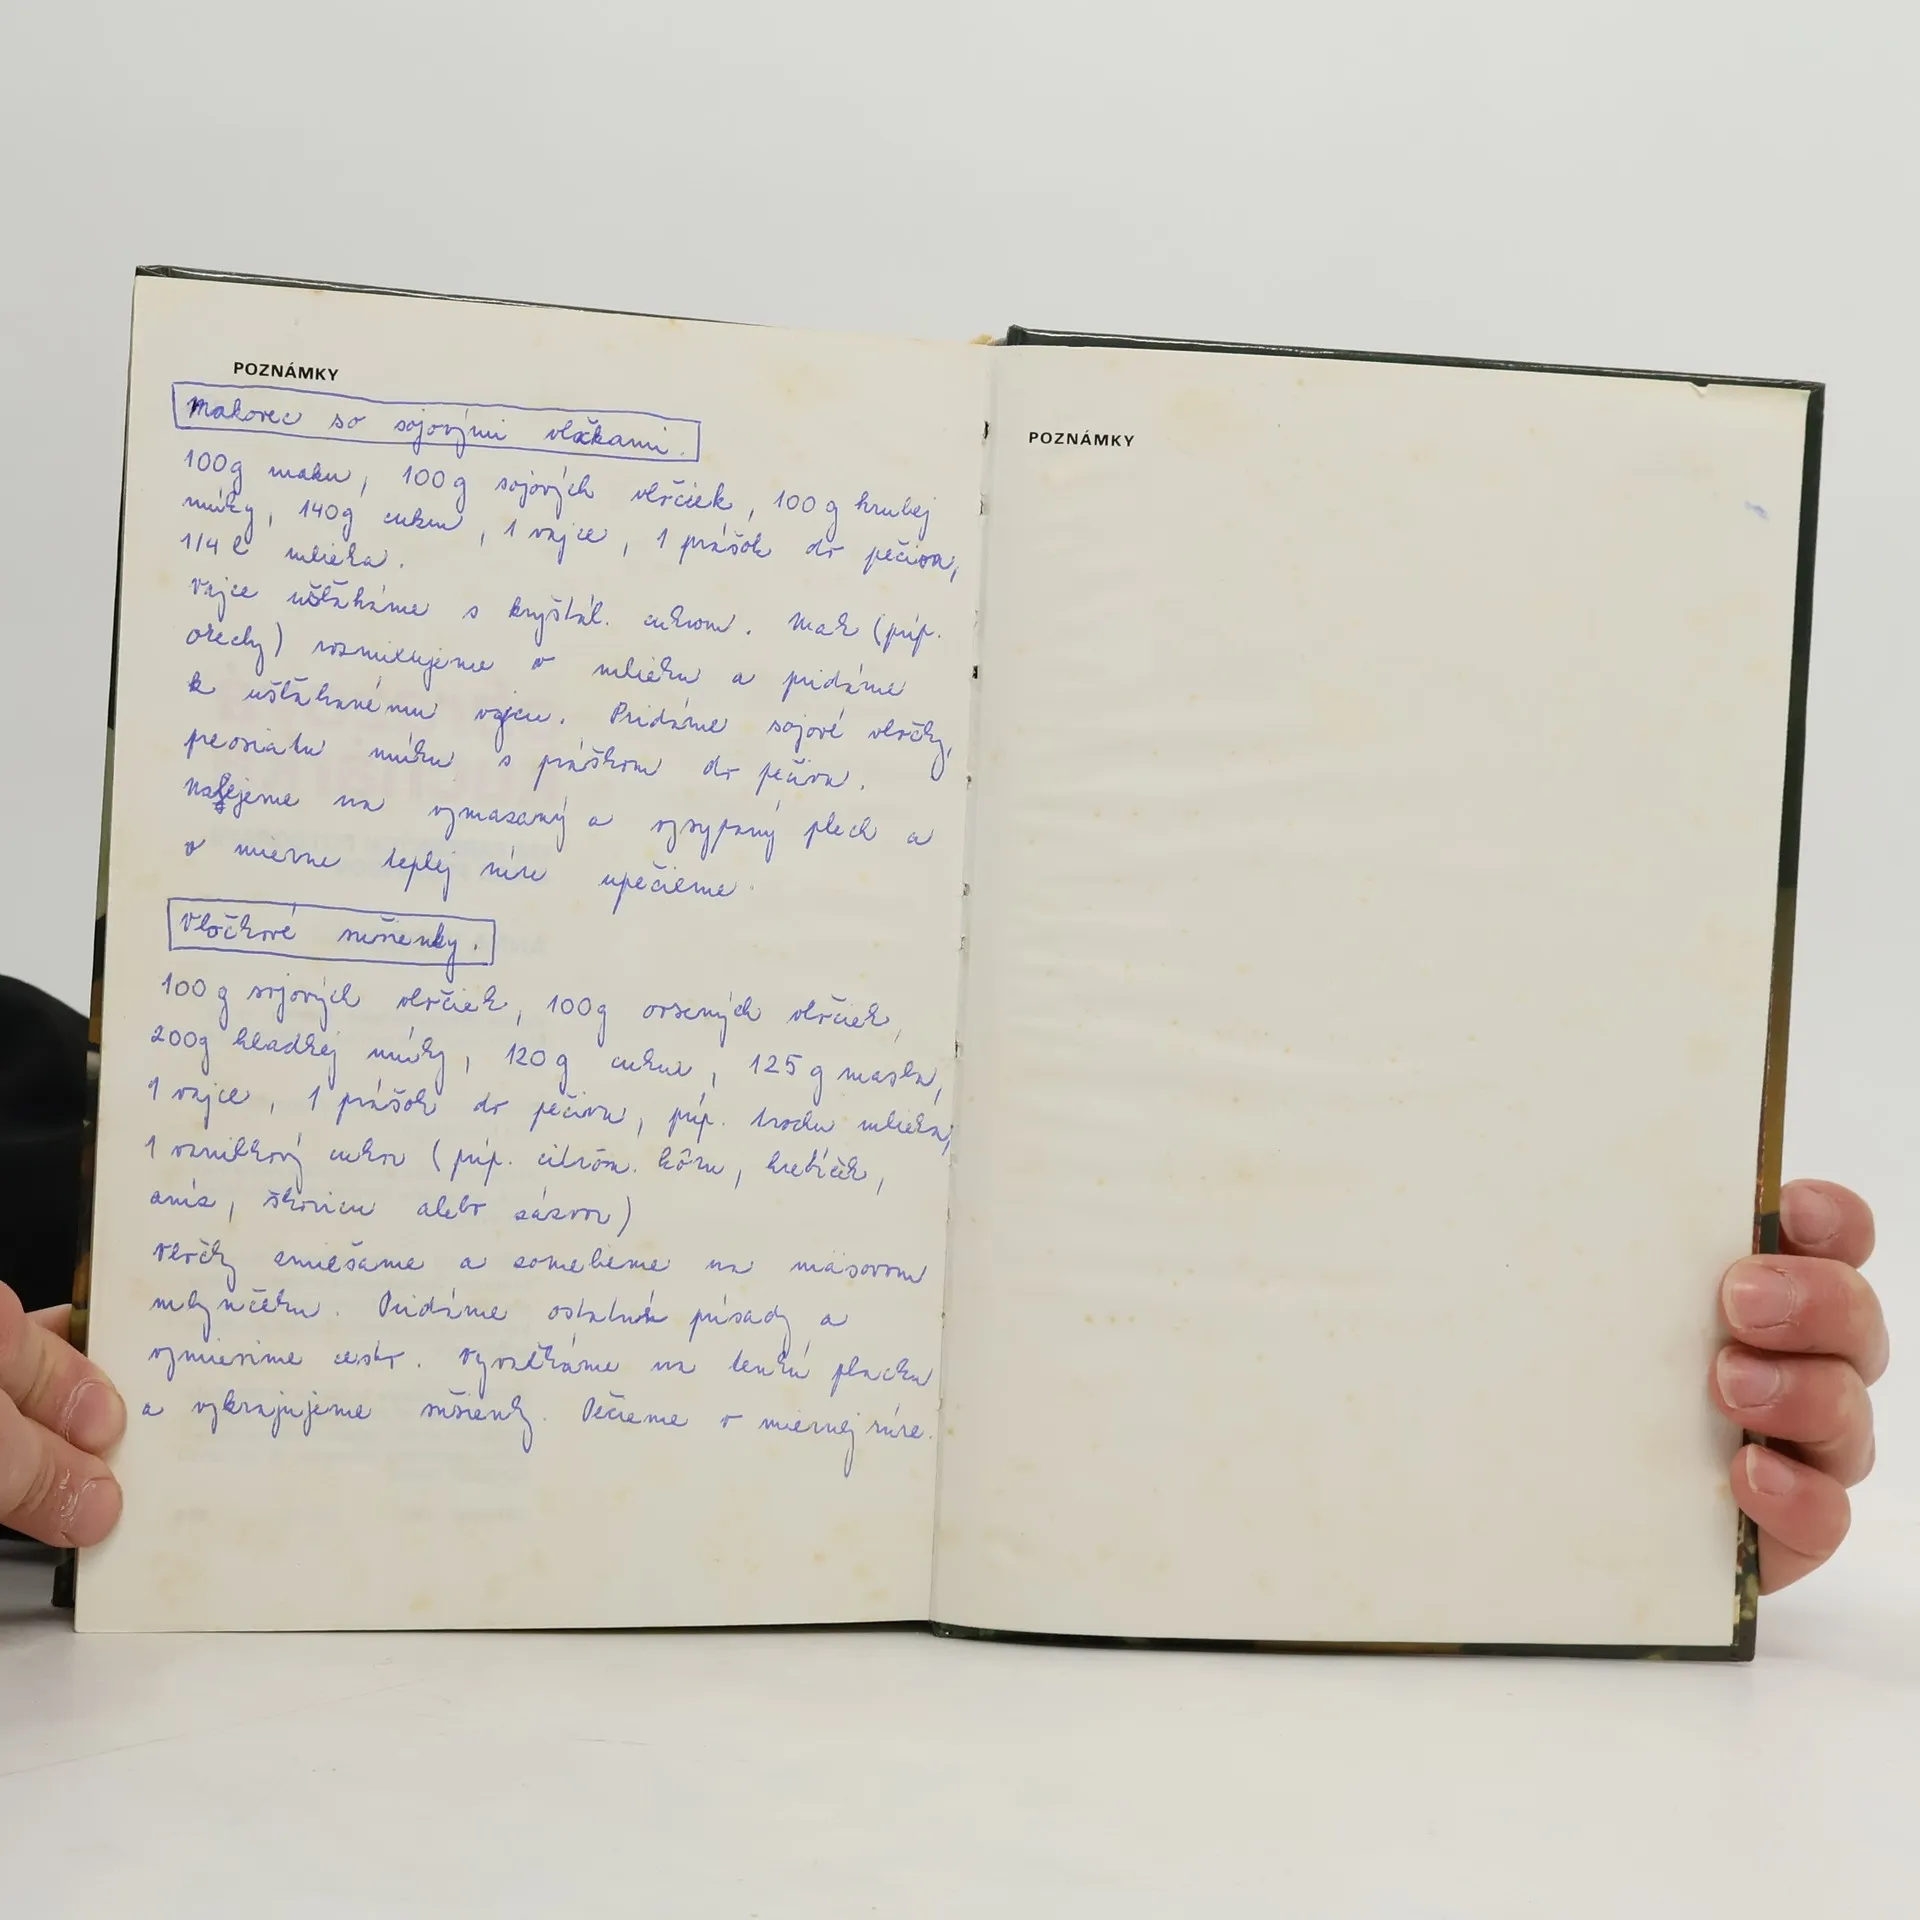 POZNÁMKY
Makovec so sojovými vločkami.
100g maku, 100g sojových vločiek, 100g hrubej
múky, 140g cukru, 1 vajce, 1 prášok do pečiva,
1/4 l mlieka.
Vajce ušľaháme s kryštál. cukrom. Mak (príp.
orechy) rozmixujeme v mlieku a pridáme
k ušľahanému vajcu. Pridáme sojové vločky,
preosiatu múku s práškom do pečiva.
Nalejeme na vymazaný a vysypaný plech a
v mierne teplej rúre upečieme.
Vločkové sušienky.
100g sojových vločiek, 100g ovsených vločiek,
200g hladkej múky, 120g cukru, 125g masla,
1 vajce, 1 prášok do pečiva, príp. trochu mlieka,
1 vanilkový cukor (príp. citrón. kôru, hrebíček,
aníz, škoricu alebo zázvor)
Vločky zmiešame a zomelieme na mäsovom
mlynčeku. Pridáme ostatné prísady a
vymiesime cesto. Vyvaľkáme na tenkú placku
a vykrajujeme sušienky. Pečieme v miernej rúre.
POZNÁMKY